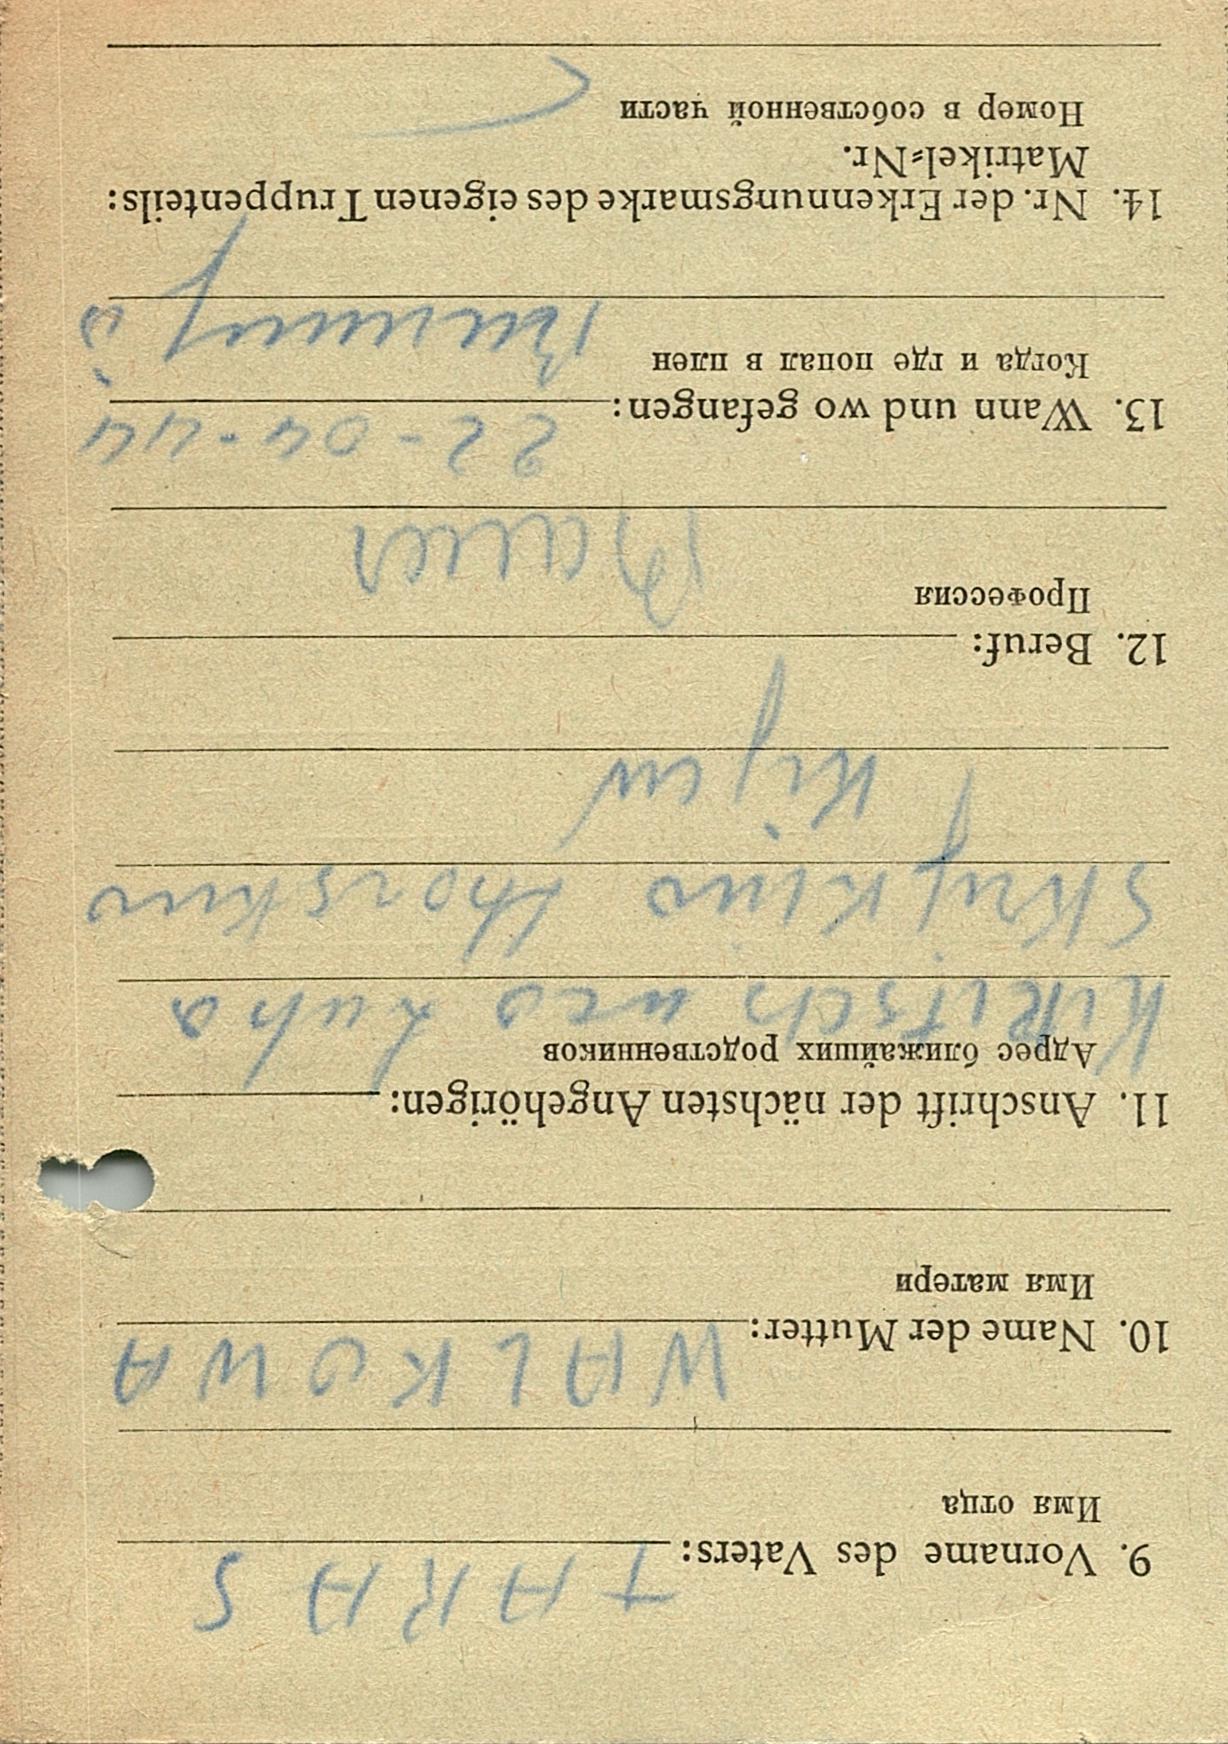 9. Vorname des Vaters: TARAS
Имя отца
10. Name der Mutter: WALKOWA
Имя матери
11. Anschrift der nächsten Angehörigen:
Адрес ближайших родственников
12. Beruf:
Профессия
Bauer
13. Wann und wo gefangen: 22-04-44
Когда и где попал в плен
14. Nr. der Erkennungsmarke des eigenen Truppenteils:
Matrikel-Nr.
Номер в собственной части